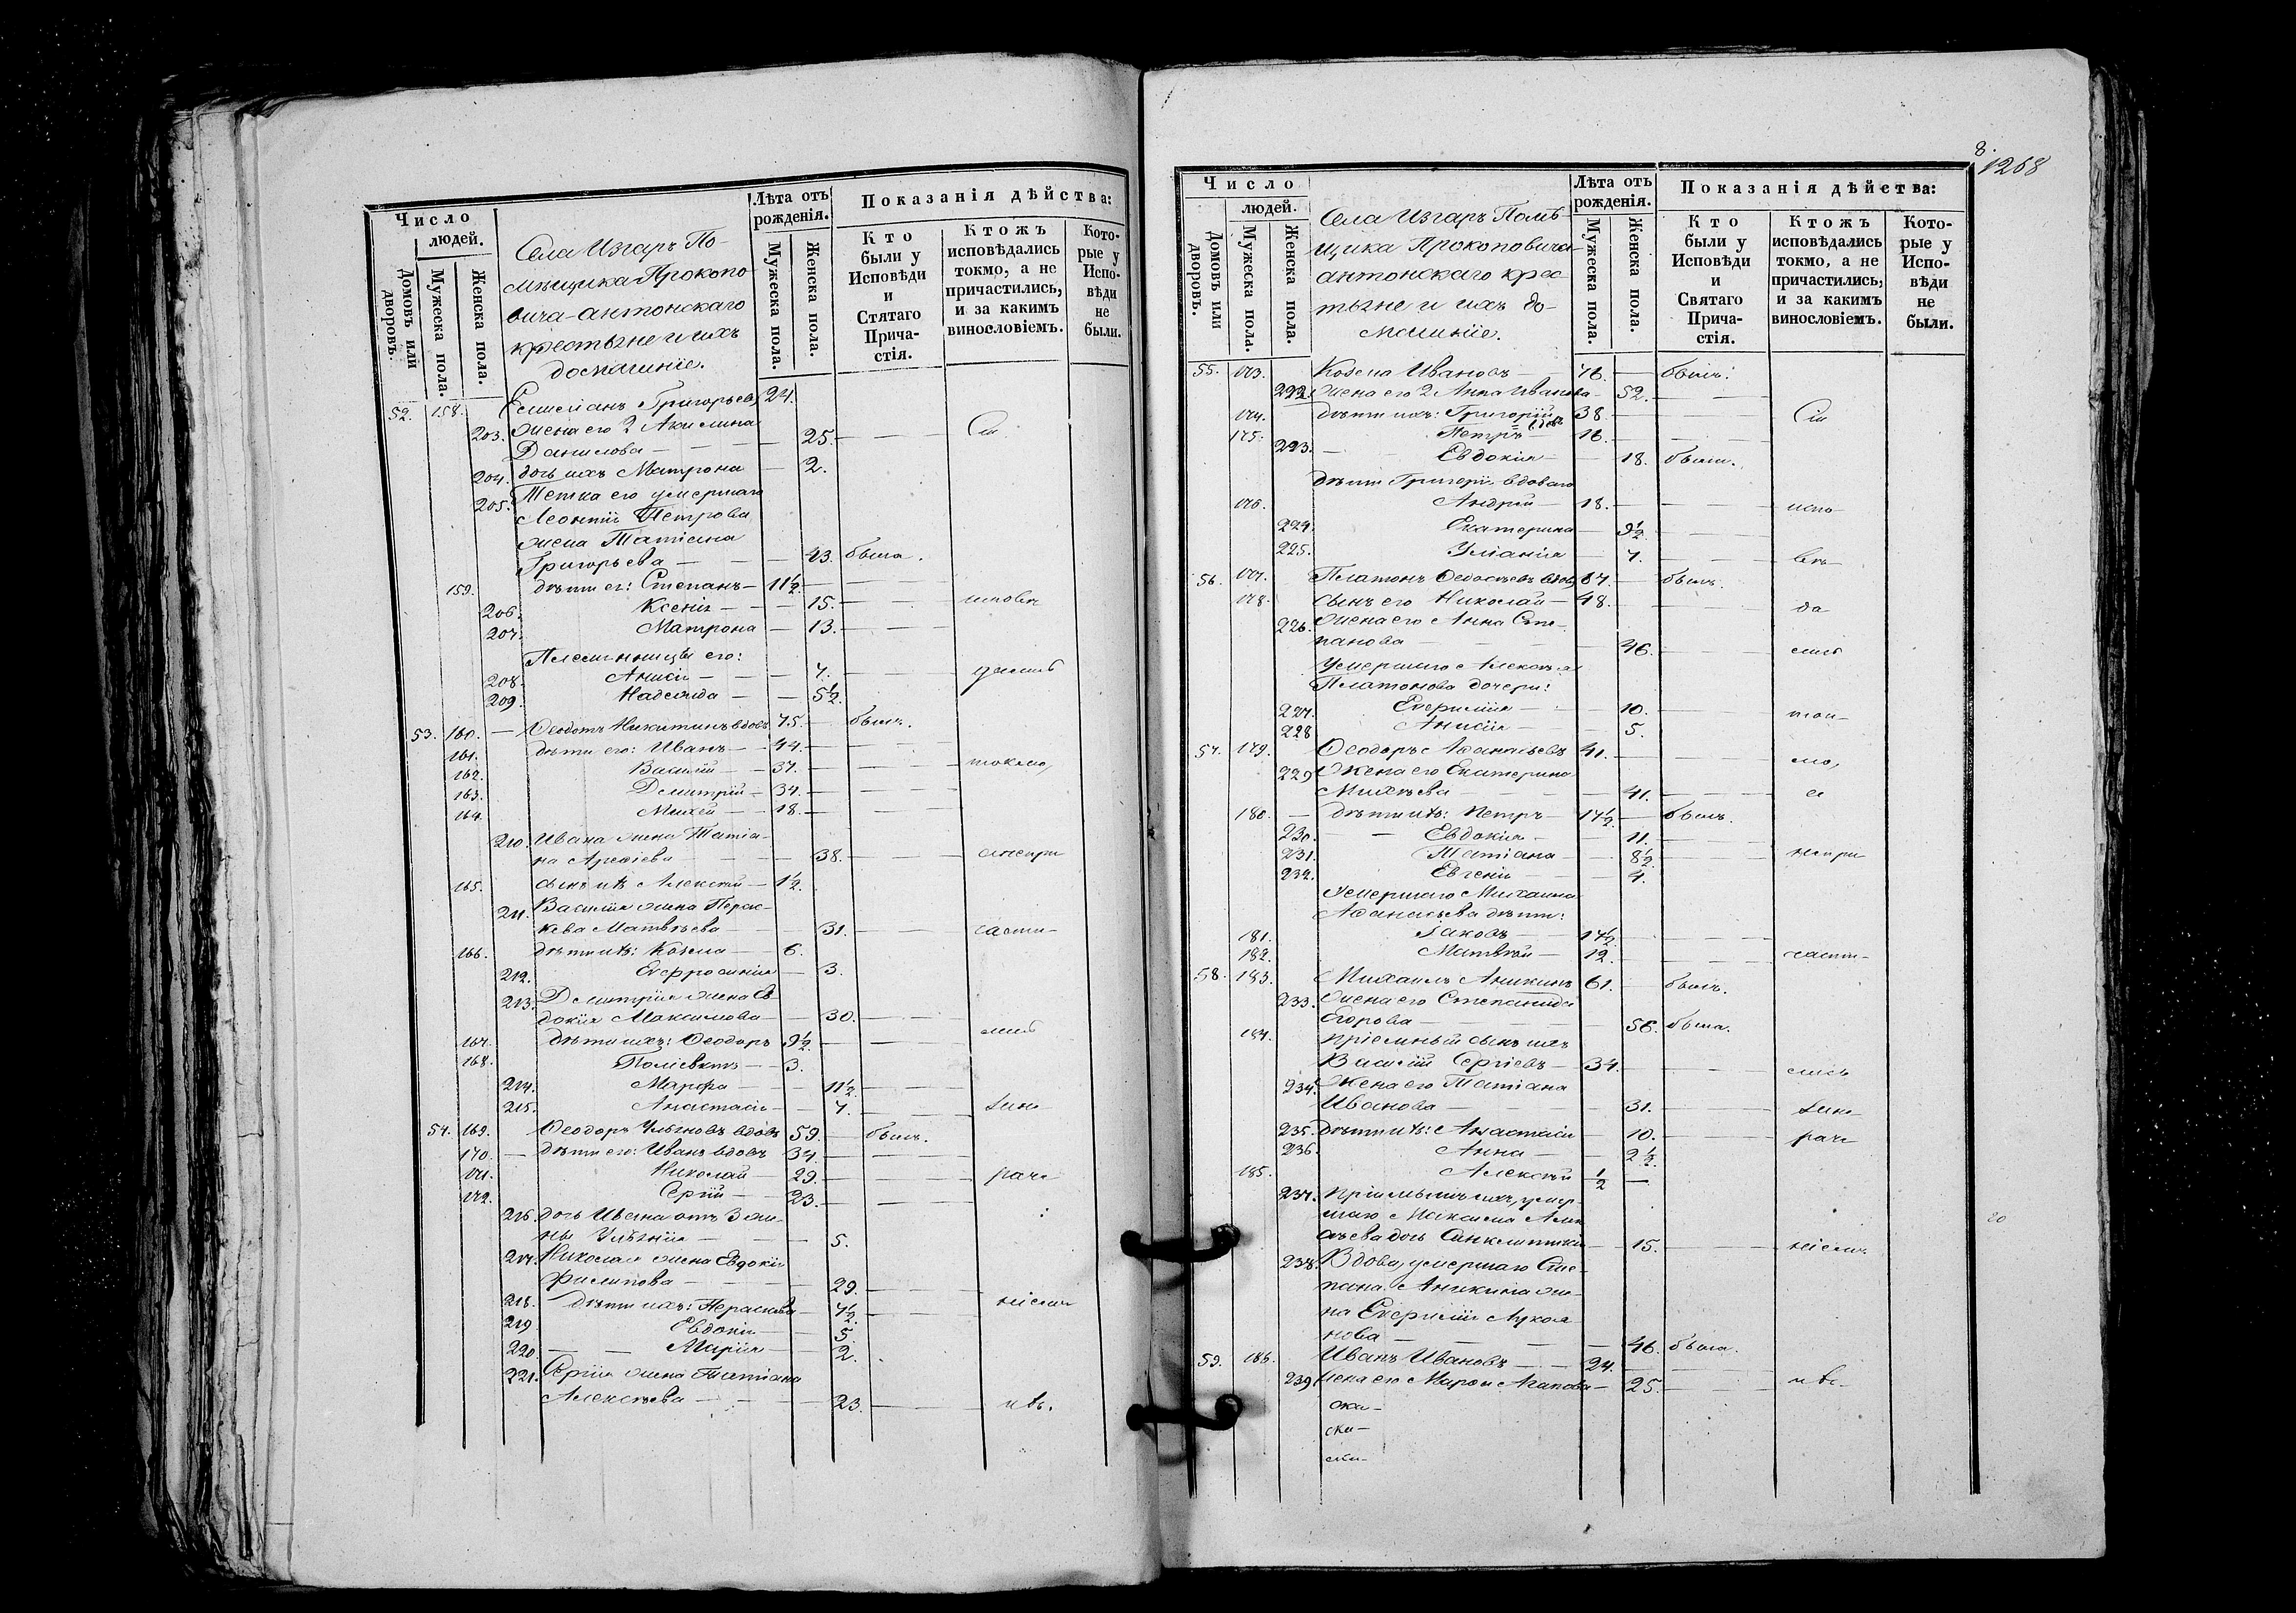 Число
людей.
Домовъ или дворовъ.
Мужеска пола.
Женска пола.
Села Изгаръ По-
мѣщика Прокопо
вича-антонскаго
крестьяне и ихъ
домашніе.
Лѣта отъ
рожденія.
Мужеска пола.
Женска пола.
Показанія дѣйства:
Кто
были у
Исповѣди
и
Стятаго
Прича-
стія.
Ктожъ
исповѣдались
токмо, а не
причастились,
и за какимъ
винословіемъ.
Кото-
рые у
Испо-
вѣди
не
были.
52. 158. Емельянъ Григорьевъ 24.
203. Жена его 2 Акилина
Данилова — 25. — Сіи
204. дочь ихъ Матрона — 2.
205. Тетка его умершаго
Леонтія Петрова
жена Татіана
Григорьева — 43. была.
159. дѣти ея: Степанъ — 11½. —
206. Ксенія — 15. — исповѣ
207. Матрона — 13. —
Племянницы его:
208. Анисія — 7. — дались
209. Надежда — 5½.
53. 160. — Ѳеодотъ Никитинъ вдовъ 75. — былъ.
161. дѣти его: Иванъ — 44. —
162. Василій — 37. — токмо,
163. Димитрій — 34. —
164. Михей — 18. —
210. Ивана жена Татіа-
на Арефіева — 38. — а непри
165. сынъ ихъ Алексѣй — 1½.
211. Василія жена Парас-
кева Матвѣева — 31. — части-
166. дѣти ихъ: Козма — 6.
212. Евфросинія — 3.
213. Димитрія жена Ев-
докія Максимова — 30. —
167. дѣти ихъ: Ѳеодоръ 9½. — лись
168. Поліевктъ — 3.
214. Марфа — 11½. —
215. Анастасія — 7. — зане
54. 169. Ѳеодоръ Ульяновъ вдовъ 59. — былъ.
170. — дѣти его: Иванъ вдовъ 34. —
171. Николай — 29. — раче
172. Сергій — 23. —
216. дочь Ивана отъ 3 же-
ны Ульянія — 5.
217. Николая жена Евдокія
Филипова — 29. —
218. дѣти ихъ: Параскева — 7½. нісмъ
219. Евдокія — 5.
220. — — Марія — 2.
221. Сергія жена Татіана
Алексѣева — 23. — ихъ.
8.
1268
Число
людей.
Домовъ или дворовъ.
Мужеска пола.
Женска пола.
Села Изгаръ Помѣ-
щика Прокоповича
антонскаго крес-
тьяне и ихъ до-
машніе.
Лѣта отъ
рожденія.
Мужеска пола.
Женска пола.
Показанія дѣйства:
Кто
были у
Исповѣди
и
Святаго
Прича-
стія.
Ктожъ
исповѣдались
токмо, а не
причастились,
и за какимъ
винословіемъ.
Кото-
рые у
Испо-
вѣди
не
были.
55. 173. Козма Ивановъ — 76. — былъ.
222. Жена его 2 Анна Иванова — 52. —
174. дѣти ихъ: Григорій 38. — Сіи
175. Петръ — 16. —
223. — Евдокія — 18. были.
дѣти Григорія вдоваго
176. Андрей — 18. — испо-
224. Екатерина — 9½. —
225. Уліанія — 7. — вѣ-
56. 177. Платонъ Ѳедосѣевъ вдовъ 67. — былъ.
178. сынъ его Николай — 48. — да-
226. Жена его Анна Сте-
панова — 46. — лись
умершаго Алексѣя
Платонова дочери:
227. — 10. — ток-
228 Анисія — 5.
57. 179. Ѳеодоръ Аѳанасьевъ 41. — мо,
229 Жена его Екатерина
Михѣева — 41. — а
180. — дѣти ихъ: Петръ — 17½. — былъ.
230. — Евдокія — 11. —
231. Татіана — 8½. — непри
232. Евгенія — 4.
Умершаго Михаила
Аѳанасьева дѣти:
181. Іаковъ — 17½. —
182. Матвѣй — 12. — части-
58. 183. Михаилъ Аникинъ 61. — былъ.
233. Жена его Степанида
Егорова — 56. была.
184. пріемный сынъ ихъ
Василій Сергіевъ — 34. — лись
234. Жена его Татіана
Иванова — 31. — зане
235. дѣти ихъ: Анастасія — 10. — раче
236. Анна — 2½.
185. Алексѣй ½ —
237. пріемышъ ихъ, умер-
шаго Максима Алек
сѣева дочь Синклитикія — 15. — нісмъ
238. Вдова, умершаго Сте-
пана Аникина же-
на Лукья
нова — 46. была.
59. 186. Иванъ Ивановъ — 24. —
239. Жена его Марѳа Агапова — 25. — ихъ.